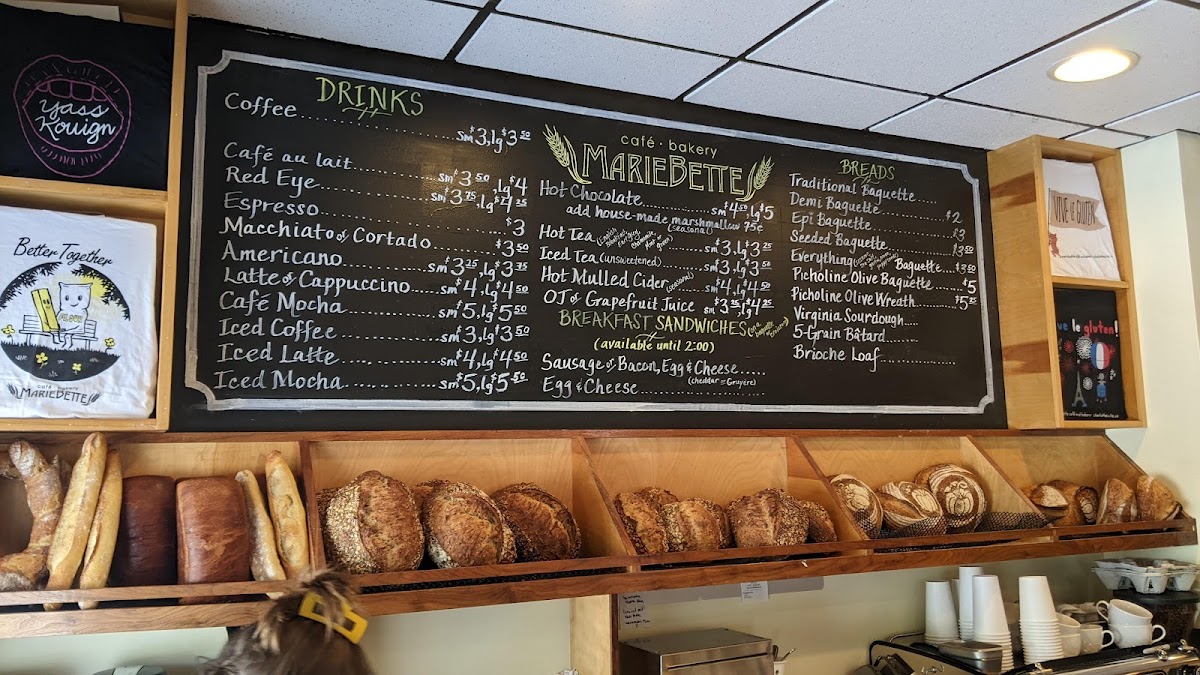 yass
Kouign
Better Together
FLOUR
café bakery
MARIEBETTE
DRINKS
Coffee sm$3, lg$3.50
Café au lait sm$3.50, lg$4
Red Eye sm$3.75, lg$4.25
Espresso $3
Macchiato or Cortado $3.50
Americano sm$3.25, lg$3.75
Latte or Cappuccino sm$4, lg$4.50
Café Mocha sm$5, lg$5.50
Iced Coffee sm$3, lg$3.50
Iced Latte sm$4, lg$4.50
Iced Mocha sm$5, lg$5.50
café · bakery
MARIEBETTE
Hot Chocolate sm$4.50, lg$5
add house-made marshmallow 75¢
(seasonal)
Hot Tea sm$3, lg$3.25
Iced Tea (unsweetened) sm$3, lg$3.50
Hot Mulled Cider (seasonal) sm$4, lg$4.50
OJ or Grapefruit Juice sm$3.25, lg$4.25
BREAKFAST SANDWICHES
(available until 2:00)
Sausage or Bacon, Egg & Cheese
(cheddar or Gruyère)
Egg & Cheese
BREADS
Traditional Baguette
Demi Baguette $2
Epi Baguette $3
Seeded Baguette $3.50
Everything Baguette $3.50
Picholine Olive Baguette $5
Picholine Olive Wreath $5.25
Virginia Sourdough
5-Grain Bâtard
Brioche Loaf
VIVE le GLUTEN
ve le gluten!